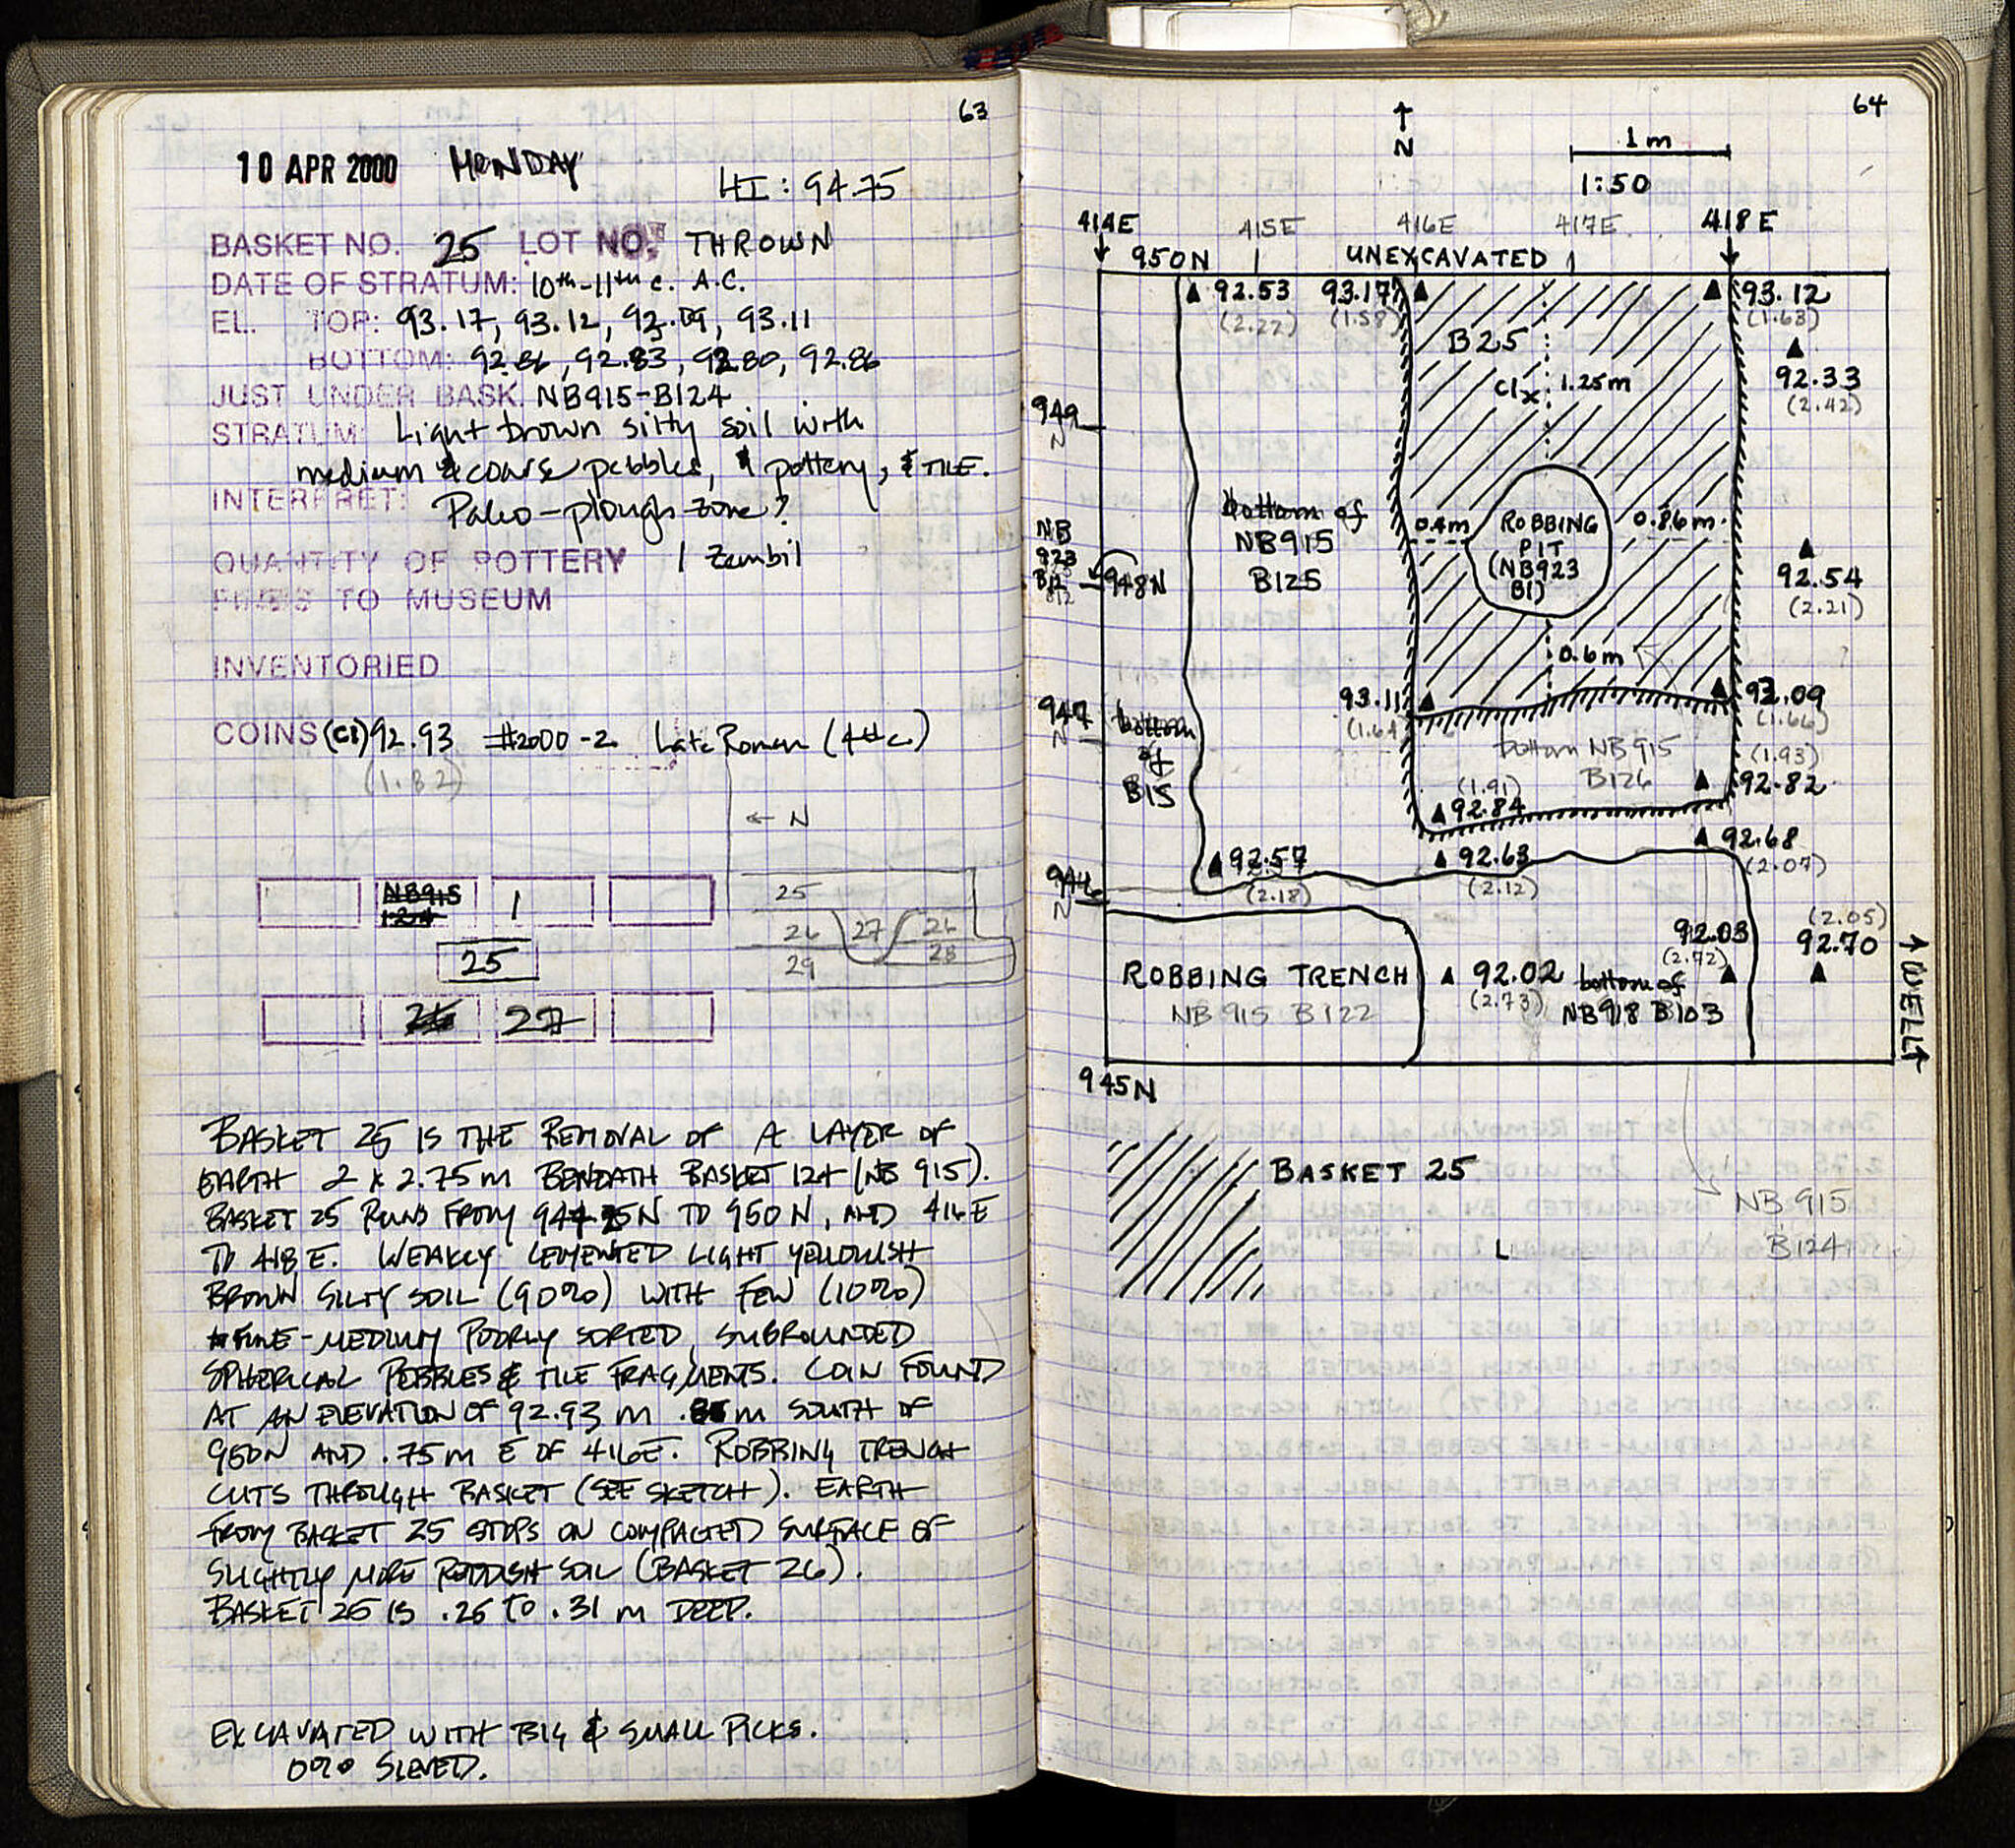 63
10 APR 2000 MONDAY
HI: 94.75
BASKET NO. 25 LOT NO. THROWN
DATE OF STRATUM: 10th-11th c. A.C.
EL. TOP: 93.17, 93.12, 93.09, 93.11
BOTTOM: 92.86, 92.83, 92.80, 92.86
JUST UNDER BASK. NB915-B124
STRATUM: Light brown silty soil with
medium & coarse pebbles, pottery, & TILE.
INTERPRET: Paleo-plough-zone?
QUANTITY OF POTTERY 1 Zembil
TO MUSEUM
INVENTORIED
COINS (C1) 92.93 #2000-2 Late Roman (4th c.)
(1.82)
← N
NB915
124
1
25
27
25
26 27 26
28
29
BASKET 25 IS THE REMOVAL OF A LAYER OF
EARTH 2 x 2.75 m BENEATH BASKET 124 (NB 915).
BASKET 25 RUNS FROM TO 950 N, AND 416 E
TO 418 E. WEAKLY CEMENTED LIGHT YELLOWISH
BROWN SILTY SOIL (90%) WITH FEW (10%)
FINE-MEDIUM POORLY SORTED, SUBROUNDED
SPHERICAL PEBBLES & TILE FRAGMENTS. COIN FOUND
AT AN ELEVATION OF 92.93 m m SOUTH OF
950N AND .75 m E OF 416E. ROBBING TRENCH
CUTS THROUGH BASKET (SEE SKETCH). EARTH
FROM BASKET 25 STOPS ON COMPACTED SURFACE OF
SLIGHTLY MORE REDDISH SOIL (BASKET 26).
BASKET 25 IS .26 TO .31 m DEEP.
EXCAVATED WITH BIG & SMALL PICKS.
0% SIEVED.
64
↑
N
1 m
1:50
414E 415E 416E 417E 418E
950N UNEXCAVATED
92.53 93.17 93.12
(2.22) (1.58) (1.63)
B25
92.33
(2.42)
C1x 1.25m
949
N
bottom of
NB915
B125
0.4m ROBBING 0.86m
PIT
(NB923
B1)
NB
923
B12
948N
92.54
(2.21)
0.6m
93.11 93.09
(1.64) (1.66)
947
N
bottom
of
B15
bottom NB915
B126
(1.93)
92.82
(1.91)
92.84
92.68
(2.07)
92.57 92.63
(2.18) (2.12)
946
N
92.03
(2.72)
(2.05)
92.70
ROBBING TRENCH
NB 915 B122
92.02
(2.73)
bottom of
NB918 B103
WELL
945N
BASKET 25
NB 915
B124
L